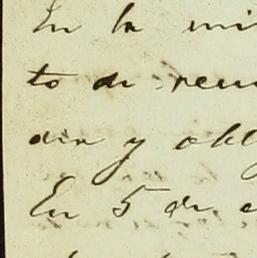 En la mi
to de reu
dia y obl
En 5 de